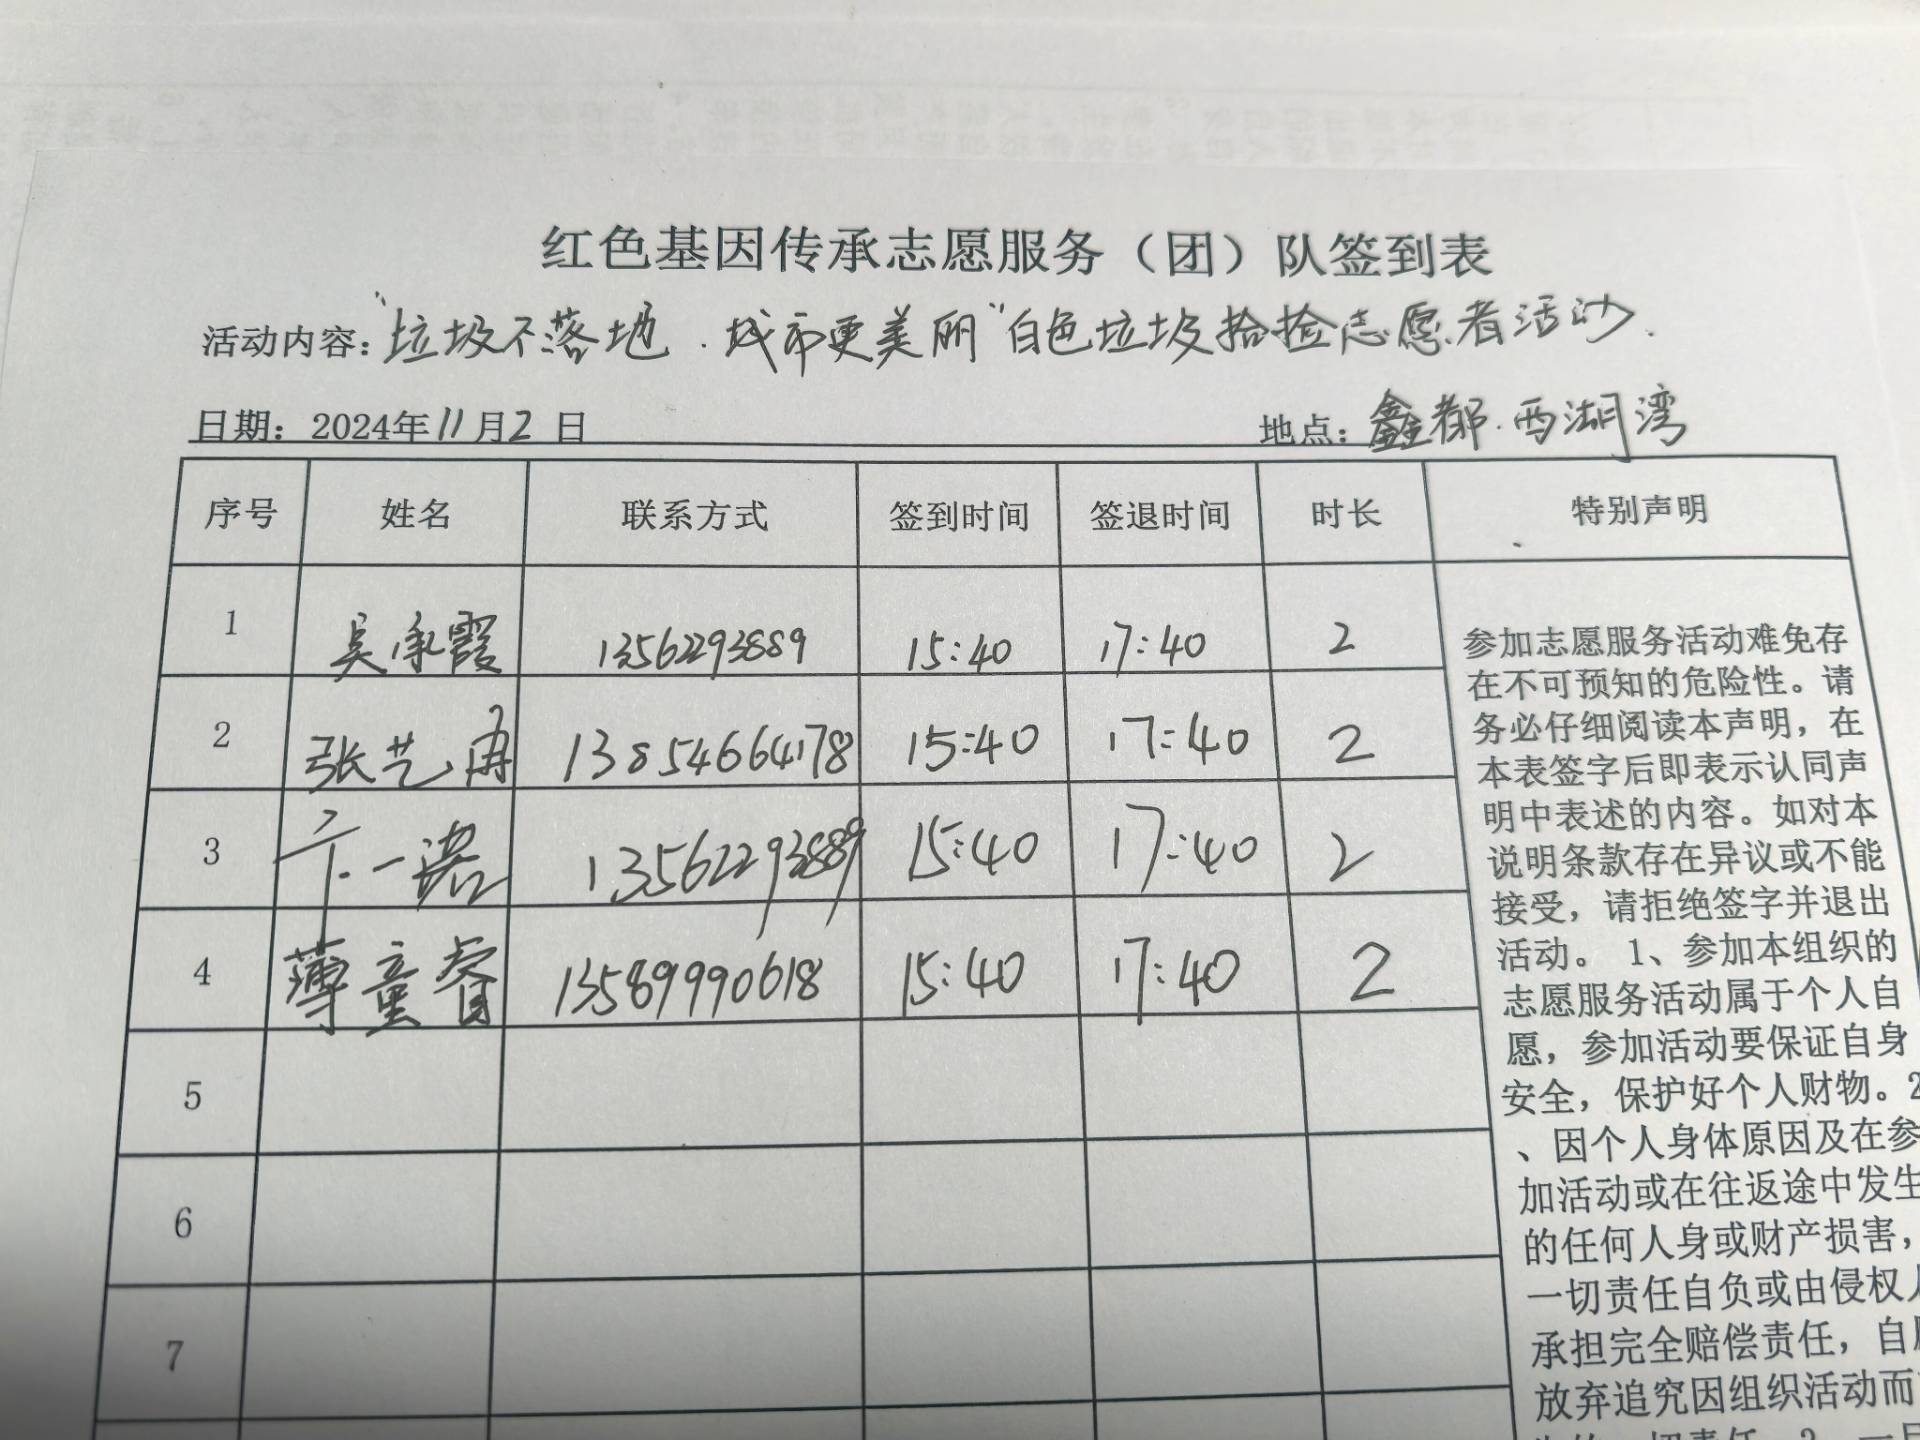 红色基因传承志愿服务（团）队签到表
活动内容："垃圾不落地．城市更美丽"白色垃圾拾捡志愿者活动．
日期：2024年11月2日 地点：鑫都·西湖湾
序号 姓名 联系方式 签到时间 签退时间 时长 特别声明
1 吴承霞 13562293889 15:40 17:40 2
2 张艺冉 13854664178 15:40 17:40 2
3 一诺 13562293889 15:40 17:40 2
4 薄童睿 13589990618 15:40 17:40 2
5
6
7
参加志愿服务活动难免存
在不可预知的危险性。请
务必仔细阅读本声明，在
本表签字后即表示认同声
明中表述的内容。如对本
说明条款存在异议或不能
接受，请拒绝签字并退出
活动。 1、参加本组织的
志愿服务活动属于个人自
愿，参加活动要保证自身
安全，保护好个人财物。2
、因个人身体原因及在参
加活动或在往返途中发生
的任何人身或财产损害，
一切责任自负或由侵权人
承担完全赔偿责任，自愿
放弃追究因组织活动而